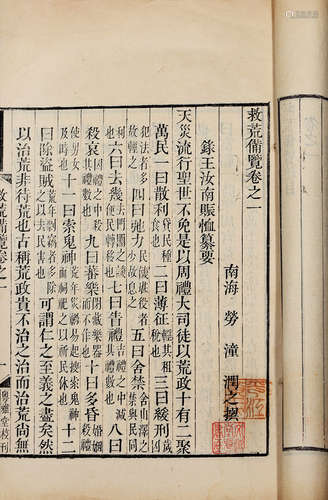 救荒備覽卷之一
南海 勞潼 潤之 撰
錄王汝南賑恤纂要
天災流行聖世不免是以周禮大司徒以荒政十有二聚
萬民一曰散利貸民種食也二曰薄征輕其租稅也三曰緩刑凶歲
犯法者多四曰弛力五曰舍禁舍山澤之禁與民同
利六曰去幾七曰眚禮吉禮之中減其禮數也八曰
殺哀凶禮之中殺其禮數九曰蕃樂閉藏樂器而不作十曰多昏婚姻
使男女及時也十一曰索鬼神十二
曰除盜賊可謂仁之至義之盡矣然
以治荒非待荒也古稱荒政貴不治之治而治荒尚無
救荒備覽卷之一
粵雅堂校刊